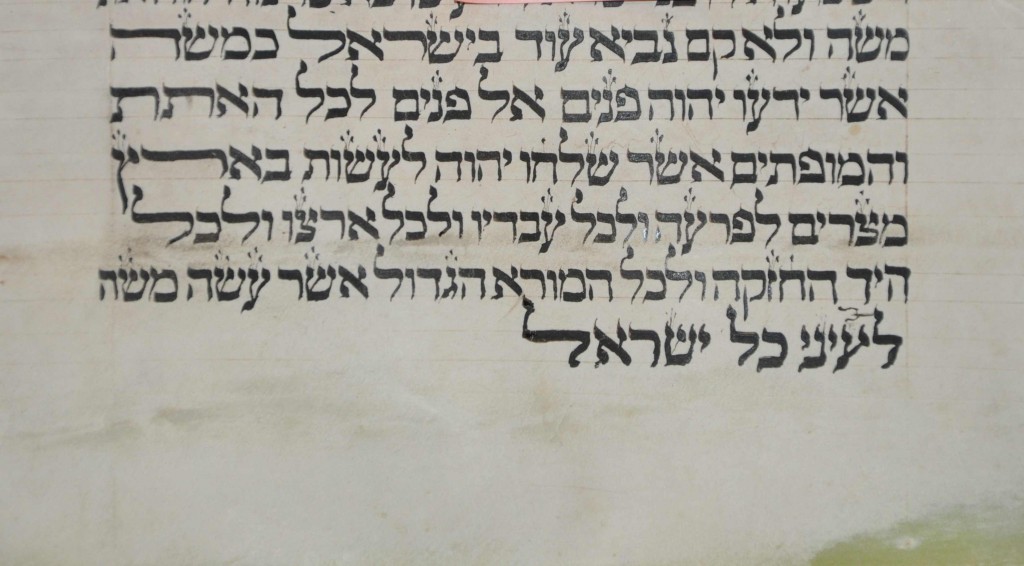 משה ולא קם נביא עוד בישראל כמשה
אשר ידעו יהוה פנים אל פנים לכל האתת
והמופתים אשר שלחו יהוה לעשות בארץ
מצרים לפרעה ולכל עבדיו ולכל ארצו ולכל
היד החזקה ולכל המורא הגדול אשר עשה משה
לעיני כל ישראל